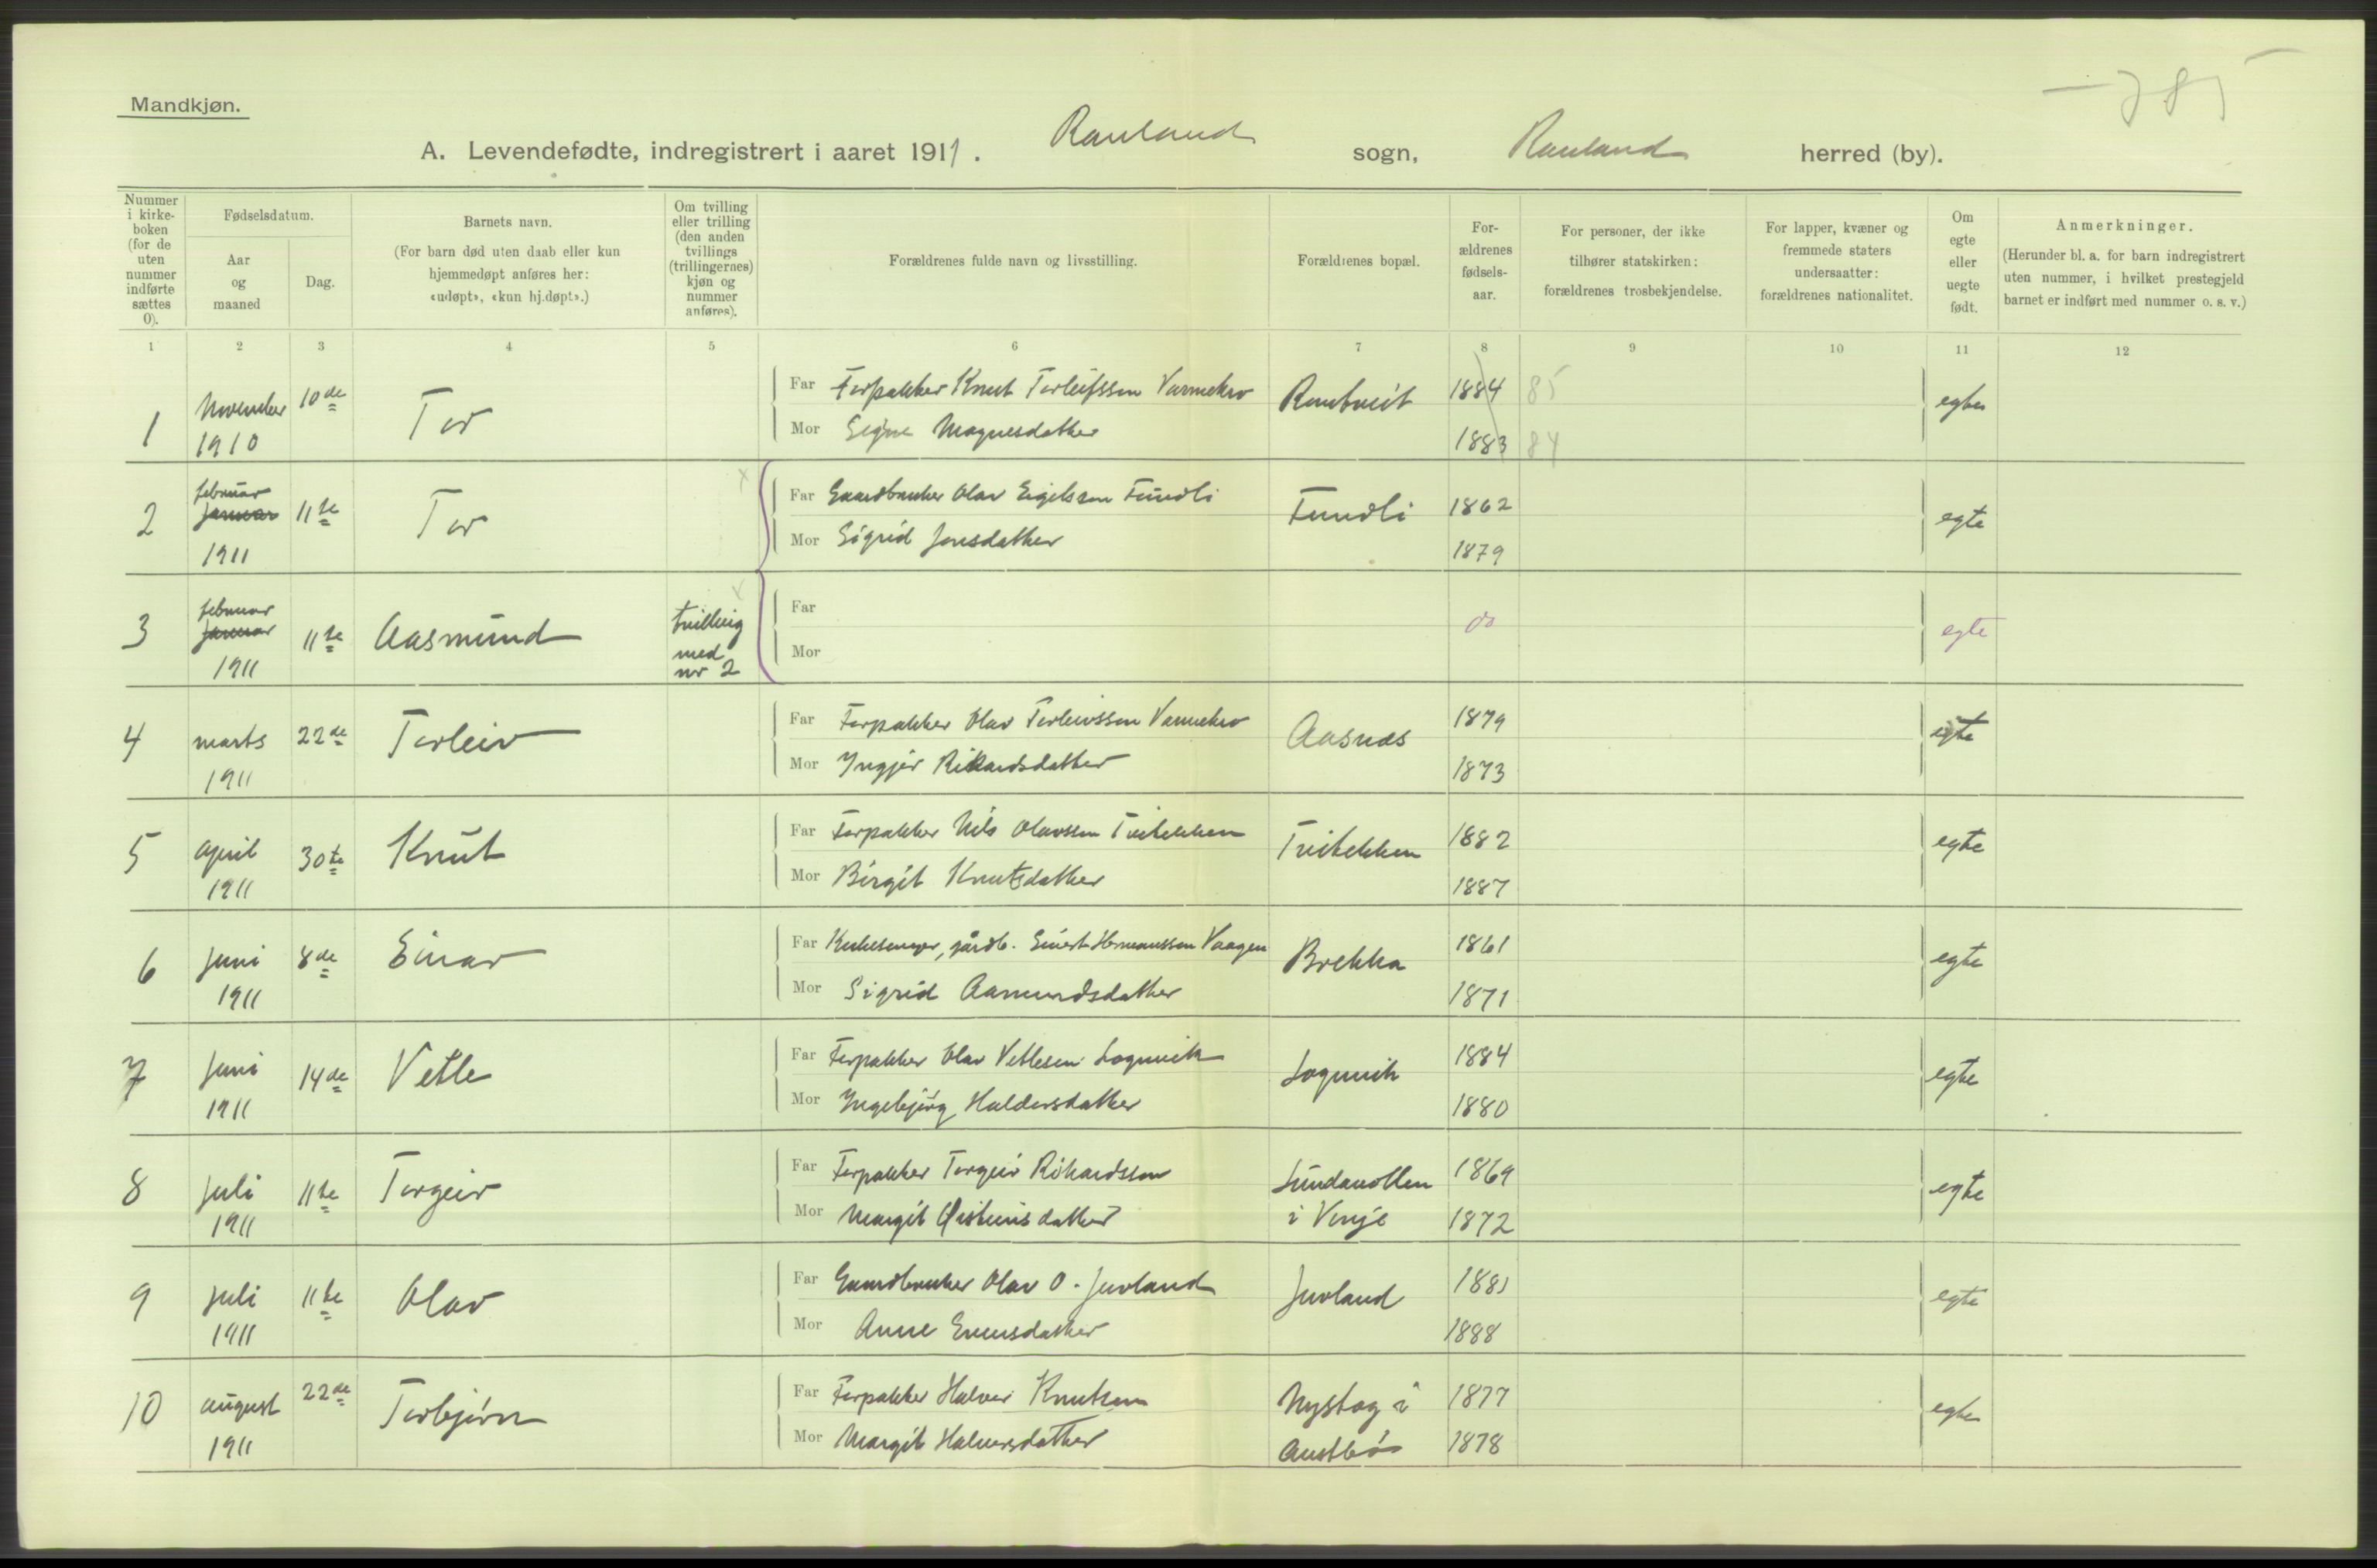 Mandkjøn.
785
A. Levendefødte, indregistrert i aaret 1911. Rauland sogn, Rauland herred (by).
Nummer i kirkeboken (for de uten nummer indførte sættes 0).
Fødselsdatum.
Aar og maaned
Dag.
Barnets navn.
(For barn død uten daab eller kun hjemmedøpt anføres her: «udøpt», «kun hj.døpt».)
Om tvilling eller trilling (den anden tvillings (trillingernes) kjøn og nummer anføres).
Forældrenes fulde navn og livsstilling.
Forældrenes bopæl.
Forældrenes fødselsaar.
For personer, der ikke tilhører statskirken: forældrenes trosbekjendelse.
For lapper, kvæner og fremmede staters undersaatter: forældrenes nationalitet.
Om egte eller uegte født.
Anmerkninger.
(Herunder bl. a. for barn indregistrert uten nummer, i hvilket prestegjeld barnet er indført med nummer o. s. v.)
1 2 3 4 5 6 7 8 9 10 11 12
1 November 1910 10de Tor
Far Forpakter Knut Torleifsson Rauntveit 1884 85 egte
Mor Signe Magnesdatter 1883 84
2 februar januar 1911 11te Tor
Far Gaardbruker Olav Eigilsson Fundli Fundli 1862 egte
Mor Sigrid Jonsdatter 1879
3 februar januar 1911 11te Aasmund tvilling med nr 2
Far do egte
Mor
4 marts 1911 22de Torleiv
Far Forpakter Olav Torleivsson Aasnes 1879 egte
Mor Yngjer Rikardsdatter 1873
5 april 1911 30te Knut
Far Forpakter Nils Olavsson Tvitekken Tvitekken 1882 egte
Mor Birgit Knutsdatter 1887
6 juni 1911 8de Einar
Far Kirkesanger, gårdb. Sivert Hermanssen Vaagen Brekka 1861 egte
Mor Sigrid Aamundsdatter 1871
7 juni 1911 14de Vetle
Far Forpakter Olav Vetlesen Lognvik Lognvik 1884 egte
Mor Yngebjørg Haldorsdatter 1880
8 juli 1911 11te Torgeir
Far Forpakter Torgeir Rikardsson Lundevollen 1869 egte
Mor Margit Øisteinsdatter i Vinje 1872
9 juli 1911 11te Olav
Far Gaardbruker Olav O. Juvland Juvland 1881 egte
Mor Anne Evensdatter 1888
10 august 1911 22de Torbjørn
Far Forpakter Halvor Knutsen Nystog i 1877 egte
Mor Margit Halvorsdatter Austbø 1878